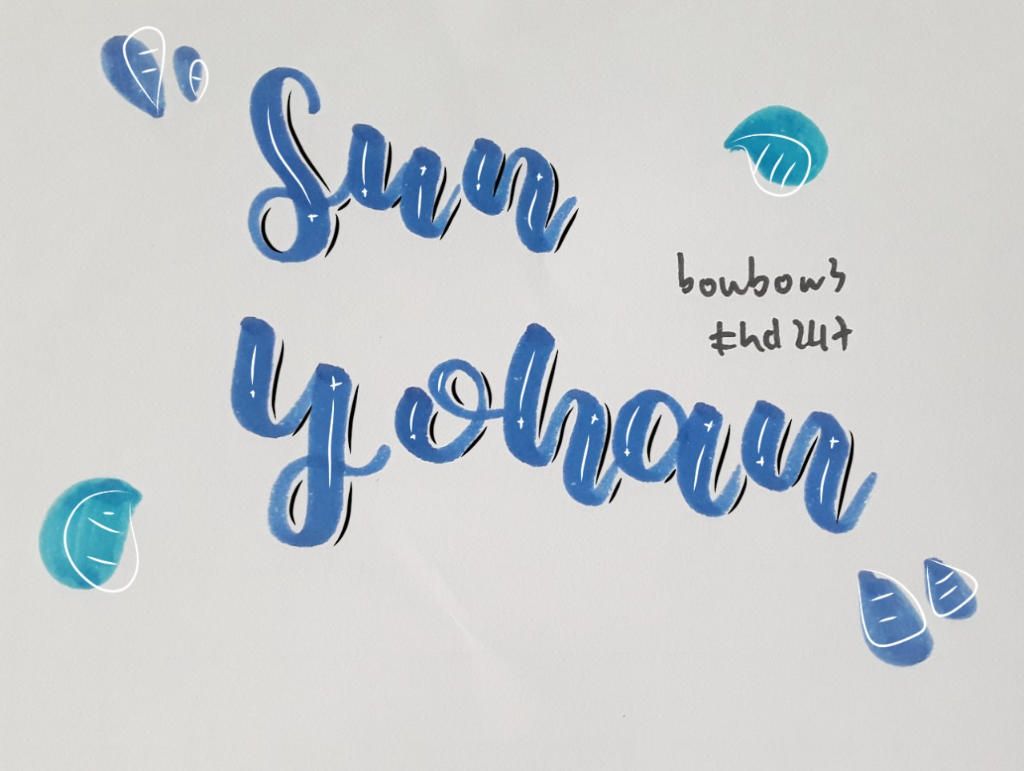 Sun
Yohan
bowbow3
thd247